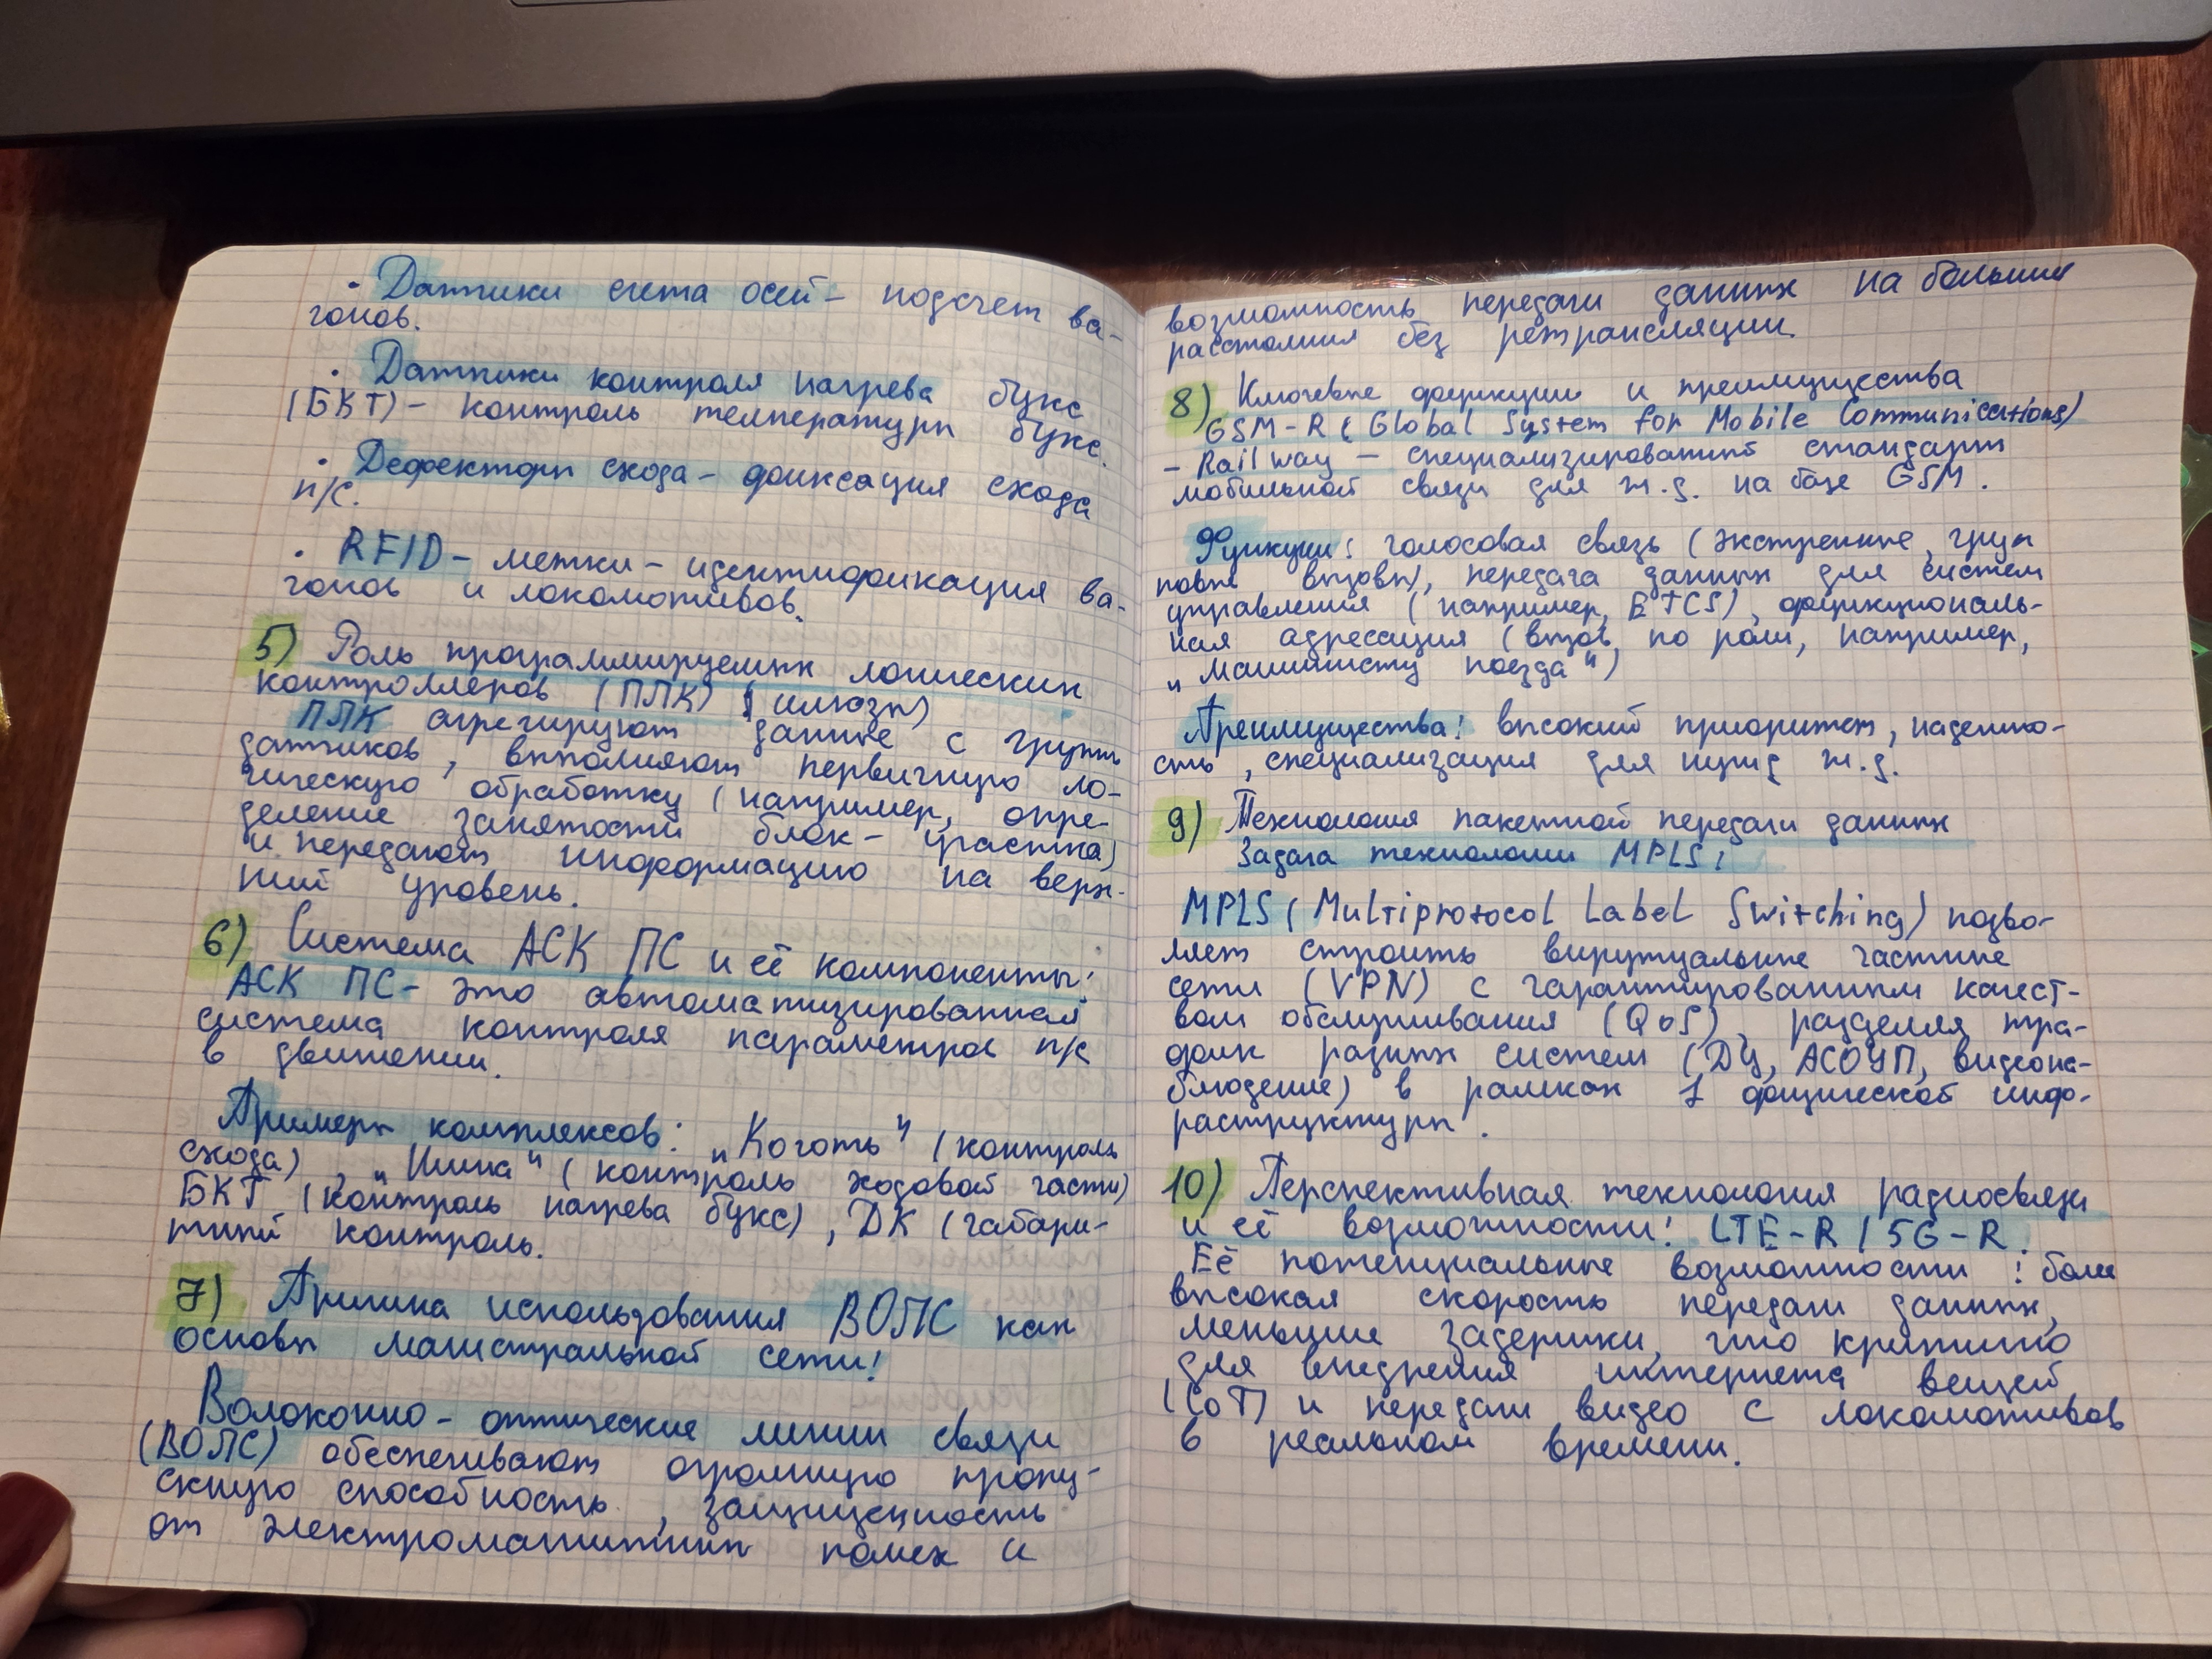 • Датчики счета осей – подсчет ва-
гонов.
• Датчики контроля нагрева букс
(БКТ) – контроль температуры букс.
• Дефекторы схода – фиксация схода
п/с.
• RFID – метки – идентификация ва-
гонов и локомотивов.
5) Роль программируемых логических
контроллеров (ПЛК) (шлюзы)
ПЛК агрегируют данные с групп
датчиков, выполняют первичную ло-
гическую обработку (например, опре-
деление занятости блок-участка)
и передают информацию на верх-
ний уровень.
6) Система АСК ПС и её компоненты:
АСК ПС – это автоматизированная
система контроля параметров п/с
в движении.
Примеры комплексов: „Коготь" (контроль
схода), (контроль ходовой части)
БКТ (контроль нагрева букс), ДК (габари-
тный контроль.
7) Причина использования ВОЛС как
основы магистральной сети!
Волоконно-оптические линии связи
(ВОЛС) обеспечивают огромную пропу-
скную способность, защищенность
от электромагнитных помех и
возможность передачи данных на большие
расстояния без ретрансляции.
8) Ключевые функции и преимущества
GSM-R (Global System for Mobile Communications)
– Railway – специализированный стандарт
мобильной связи для ж.д. на базе GSM.
Функции: голосовая связь (экстренные, груп
повые вызовы), передача данных для систем
управления (например, ETCS), функциональ-
ная адресация (вызов по роли, например,
„Машинисту поезда")
Преимущества: высокий приоритет, надежно-
сть, специализация для нужд ж.д.
9) Технология пакетной передачи данных
Задача технологии MPLS:
MPLS (Multiprotocol Label Switching) позво-
ляет строить вирутуальные частные
сети (VPN) с гарантированным качест-
вом обслуживания (QoS), разделяя тра-
фик разных систем (ДЦ, АСОУП, видеона-
блюдение) в рамках 1 физической инфо-
раструктуры.
10) Перспективная технология радиосвязи
и её возможности: LTE-R / 5G-R.
Её потенциальные возможности: более
высокая скорость передачи данных,
меньшие задержки, что критично
для внедрения интернета вещей
(IoT) и передачи видео с локомотивов
в реальном времени.